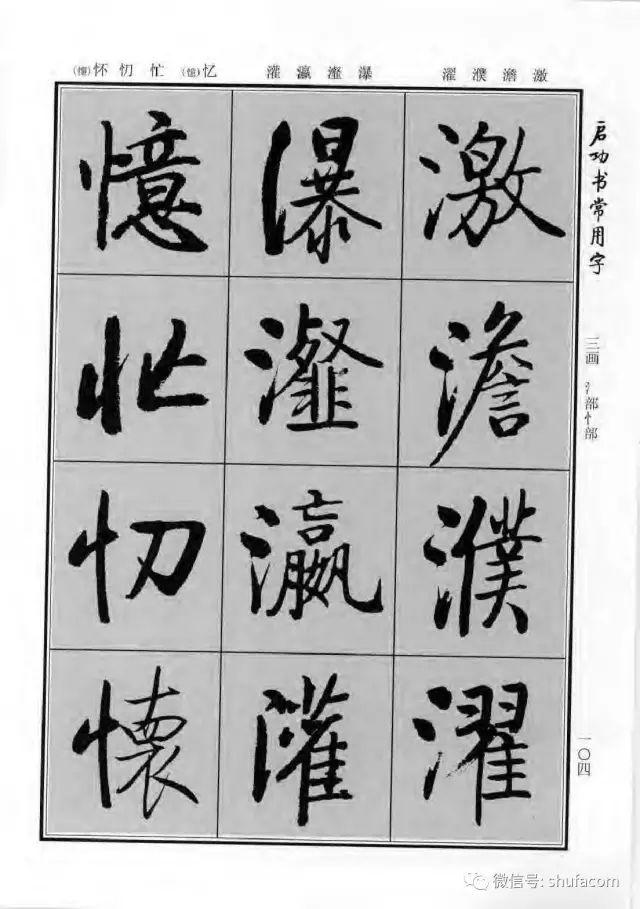 启功书常用字
三画 氵部忄部
一〇四
激澹濮濯
瀑瀣瀛灌
忆(憶)忙忉怀(懷)
激澹濮濯
瀑瀣瀛灌
憶忙忉懷
微信号: shufacom